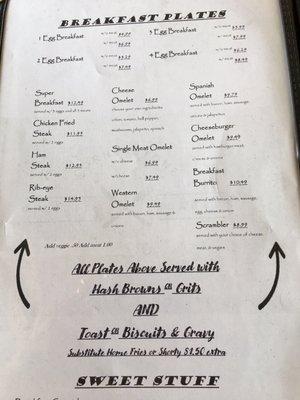 BREAKFAST PLATES
1 Egg Breakfast
2 Egg Breakfast
3 Egg Breakfast
4 Egg Breakfast
Super
Breakfast $12.49
Chicken Fried
Steak $11.99
served w/ 2 eggs
Ham
Steak $12.99
served w/ 2 eggs
Rib-eye
Steak $14.99
served w/ 2 eggs
Cheese
Omelet $6.99
mushrooms, jalapeño, spinach
Single Meat Omelet
w/o cheese $6.99
w/cheese $7.49
Western
Omelet $9.49
served with bacon, ham, sausage &
onions
Spanish
Omelet $9.79
served with bacon, ham, sausage,
onions & jalapenos
Cheeseburger
Omelet $9.49
served with hamburger meat,
cheese & onions
Breakfast
Burrito $10.49
served with bacon, ham, sausage,
egg, cheese & onion
Scrambler $8.99
served with your choice of cheese,
meat, & veggies
Add veggie .50 Add meat 1.00
All Plates Above Served with
Hash Browns or Grits
AND
Toast or Biscuits & Gravy
Substitute Home Fries or Shorty $1.50 extra
SWEET STUFF